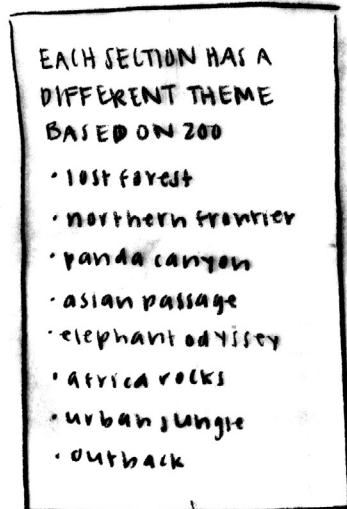 EACH SECTION HAS A
DIFFERENT THEME
BASED ON ZOO
• lost forest
• northern frontier
• panda canyon
• asian passage
• elephant odyssey
• africa rocks
• urban jungle
• outback